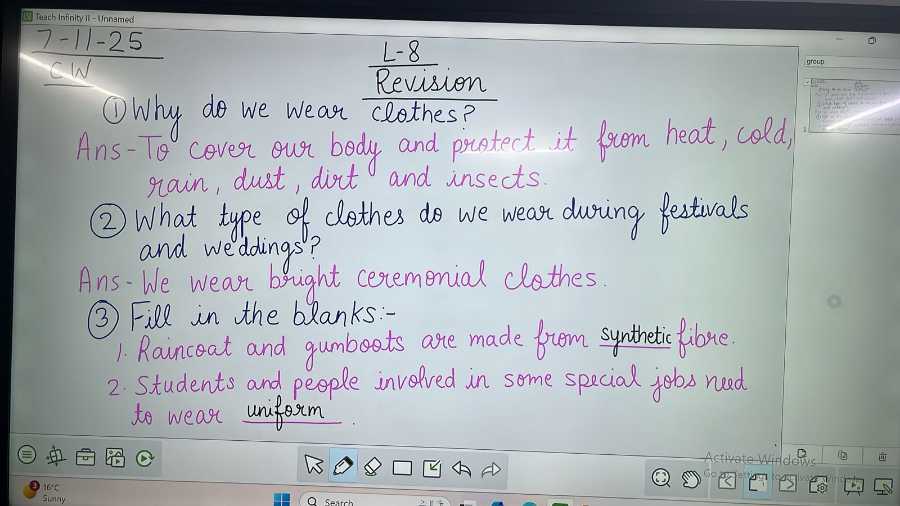 Teach Infinity II - Unnamed
7-11-25
CW
L-8
Revision
group
① Why do we wear clothes?
Ans - To cover our body and protect it from heat, cold,
rain, dust, dirt and insects.
② What type of clothes do we wear during festivals
and weddings?
Ans - We wear bright ceremonial clothes.
③ Fill in the blanks:-
1. Raincoat and gumboots are made from synthetic fibre.
2. Students and people involved in some special jobs need
to wear uniform.
Activate Windows
3
16°C
Sunny
Search